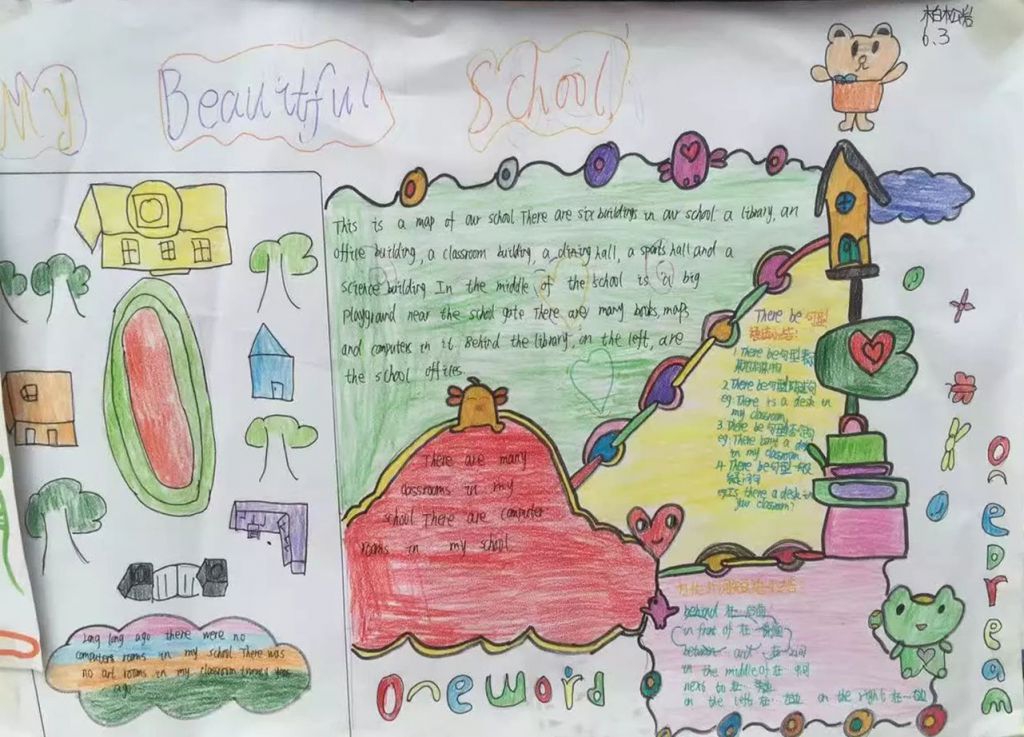 6.3
My Beautful School
This is a map of our school. There are six buildings in our school: a library, an
office building, a classroom building, a dining hall, a sports hall and a
science building. In the middle of the school is a big
playground near the school gate There are many books, maps
and computers in it. Behind the library, on the left, are
the school offices.
There are many
classrooms in my
school There are computer
rooms in my school
There be 句型
1. There be句型
2. There be句型
eg: There is a desk in
my classroom
3. There be句型
in my classroom
4. There be句型
eg: Is there a desk in
your classroom?
behind 在
in front of 在
between and 在 之间
in the middle of 在 中间
next to 在
on the left 在 on the right 在
Long long ago there were no
computers rooms in my school There was
no art rooms in my classroom
ago
One Word
One Dream